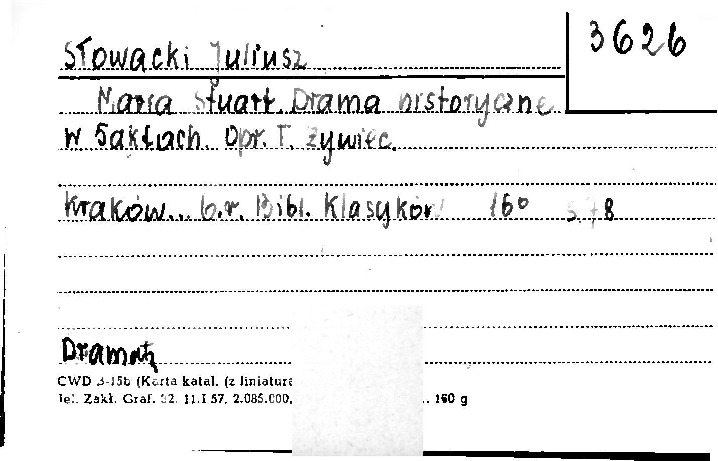 Słowacki Juliusz
3626
Maria Stuart. Drama historyczne
w 5 aktach. Opr. T. Żywiec.
Kraków... b.r. Bibl. Klasyków 16° s. 78
Dramaty
CWD 3-15b (Karta katal. (z liniaturą
Zakł. Graf. 11.I 57. 2.085.000. 160 g